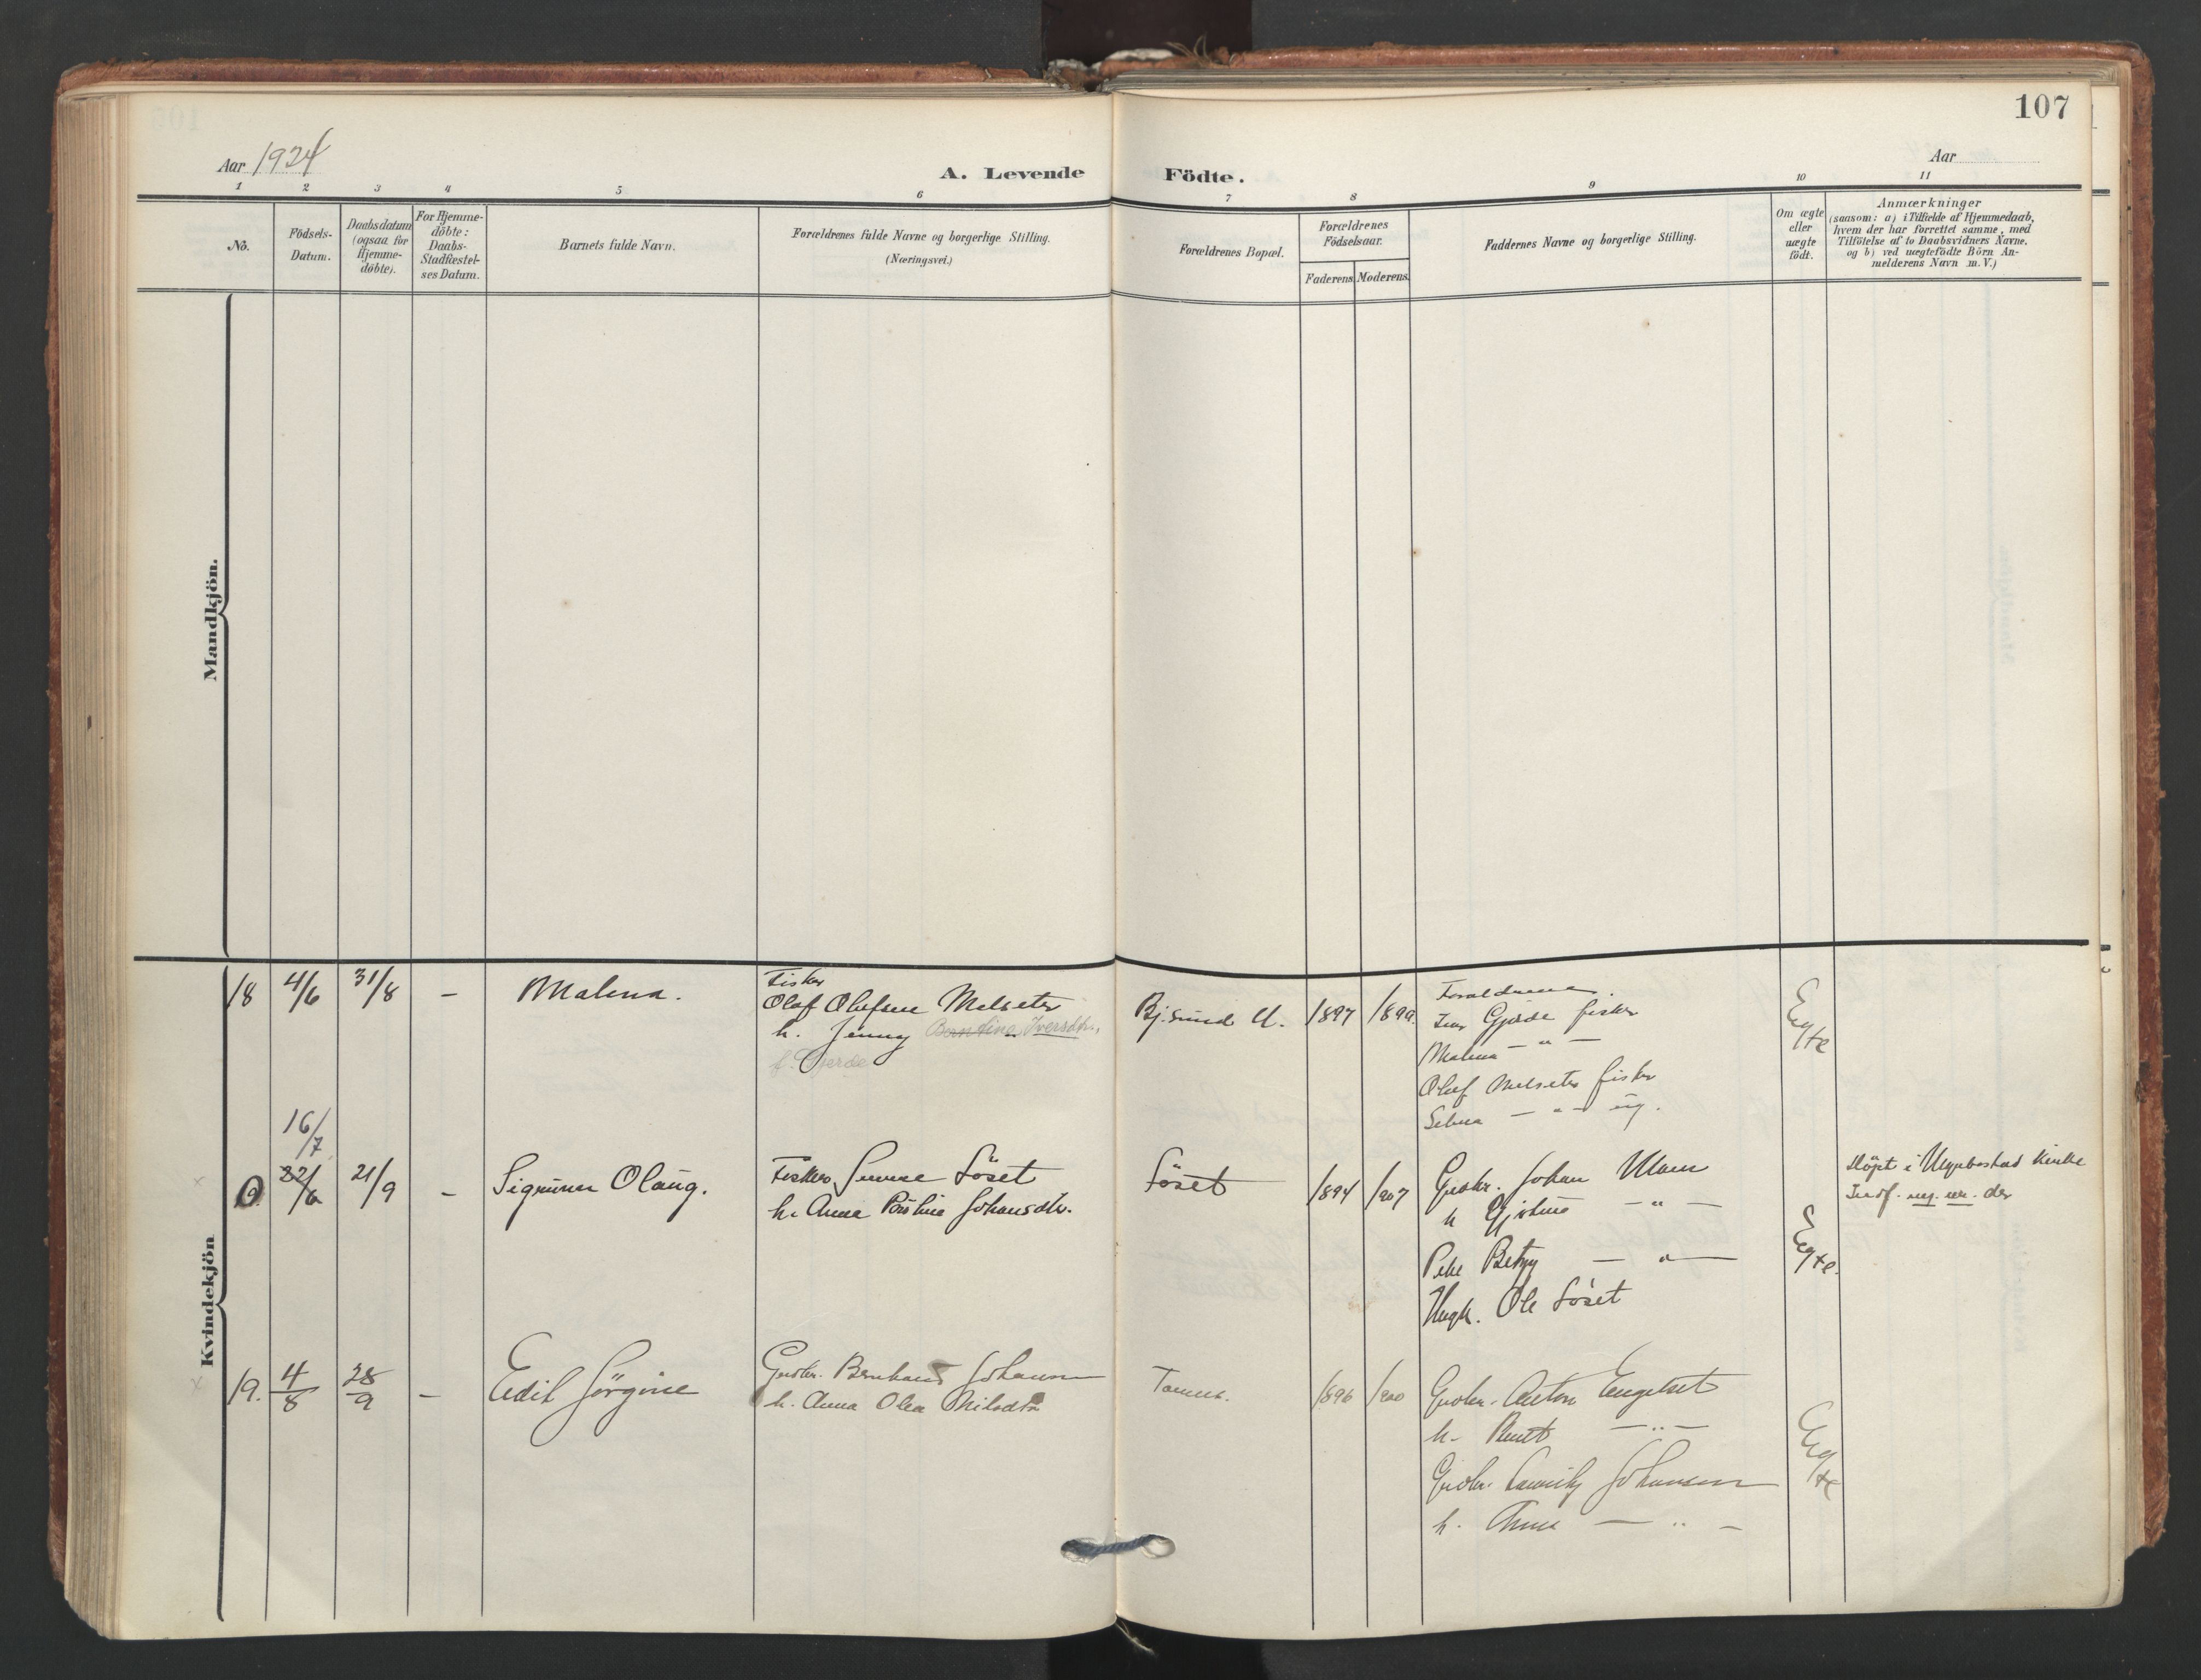 107
Aar 1924
A. Levende Födte.
Aar
1 2 3 4 5 6 7 8 9 10 11
No.
Födsels-
Datum.
Daabsdatum
(ogsaa for
Hjemme-
döbte).
For Hjemme-
döbte:
Daabs-
Stadfæstel-
ses Datum.
Barnets fulde Navn.
Forældrenes fulde Navne og borgerlige Stilling.
(Næringsvei.)
Forældrenes Bopæl.
Forældrenes
Födselsaar.
Faderens Moderens.
Faddernes Navne og borgerlige Stilling.
Om ægte
eller
uægte
födt.
Anmærkninger
(saasom: a) i Tilfælde af Hjemmedaab,
hvem der har forrettet samme, med
Tilföielse af to Daabsvidners Navne.
og b) ved uægtefödte Börn An-
melderens Navn m. V.)
Mandkjön.
Kvindekjön
18 4/6 31/8 – Malena.
Fisker
Olaf Olufsen Melseter
h. Jenny Berntina Iversdtr.,
f. Gjerde
Bj.sund U. 1897 1899
Foraldrene.
Iver Gjerde fisker
Malena – " –
Olaf Melseter fisker
Selma – " – ug.
Egte
16/7
0 22/6 21/9 – Sigrunn Olaug.
Fisker Söset
h. Anna Johansdtr.
Söset 1894 1907
Grdbr. Johan Ulsen
h – " –
Betzy – " –
Ungk. Ole Söset
Egte.
Döpt i Kirke
19. 4/8 28/9 – Edil Jörgine
Grdbr. Bernhard Johansen
h. Anna Olea Nilsdtr
1896 1900
Grdbr. Anton Engelset
h. – " –
Grdbr. Johansen
h. Anna – " –
Egte